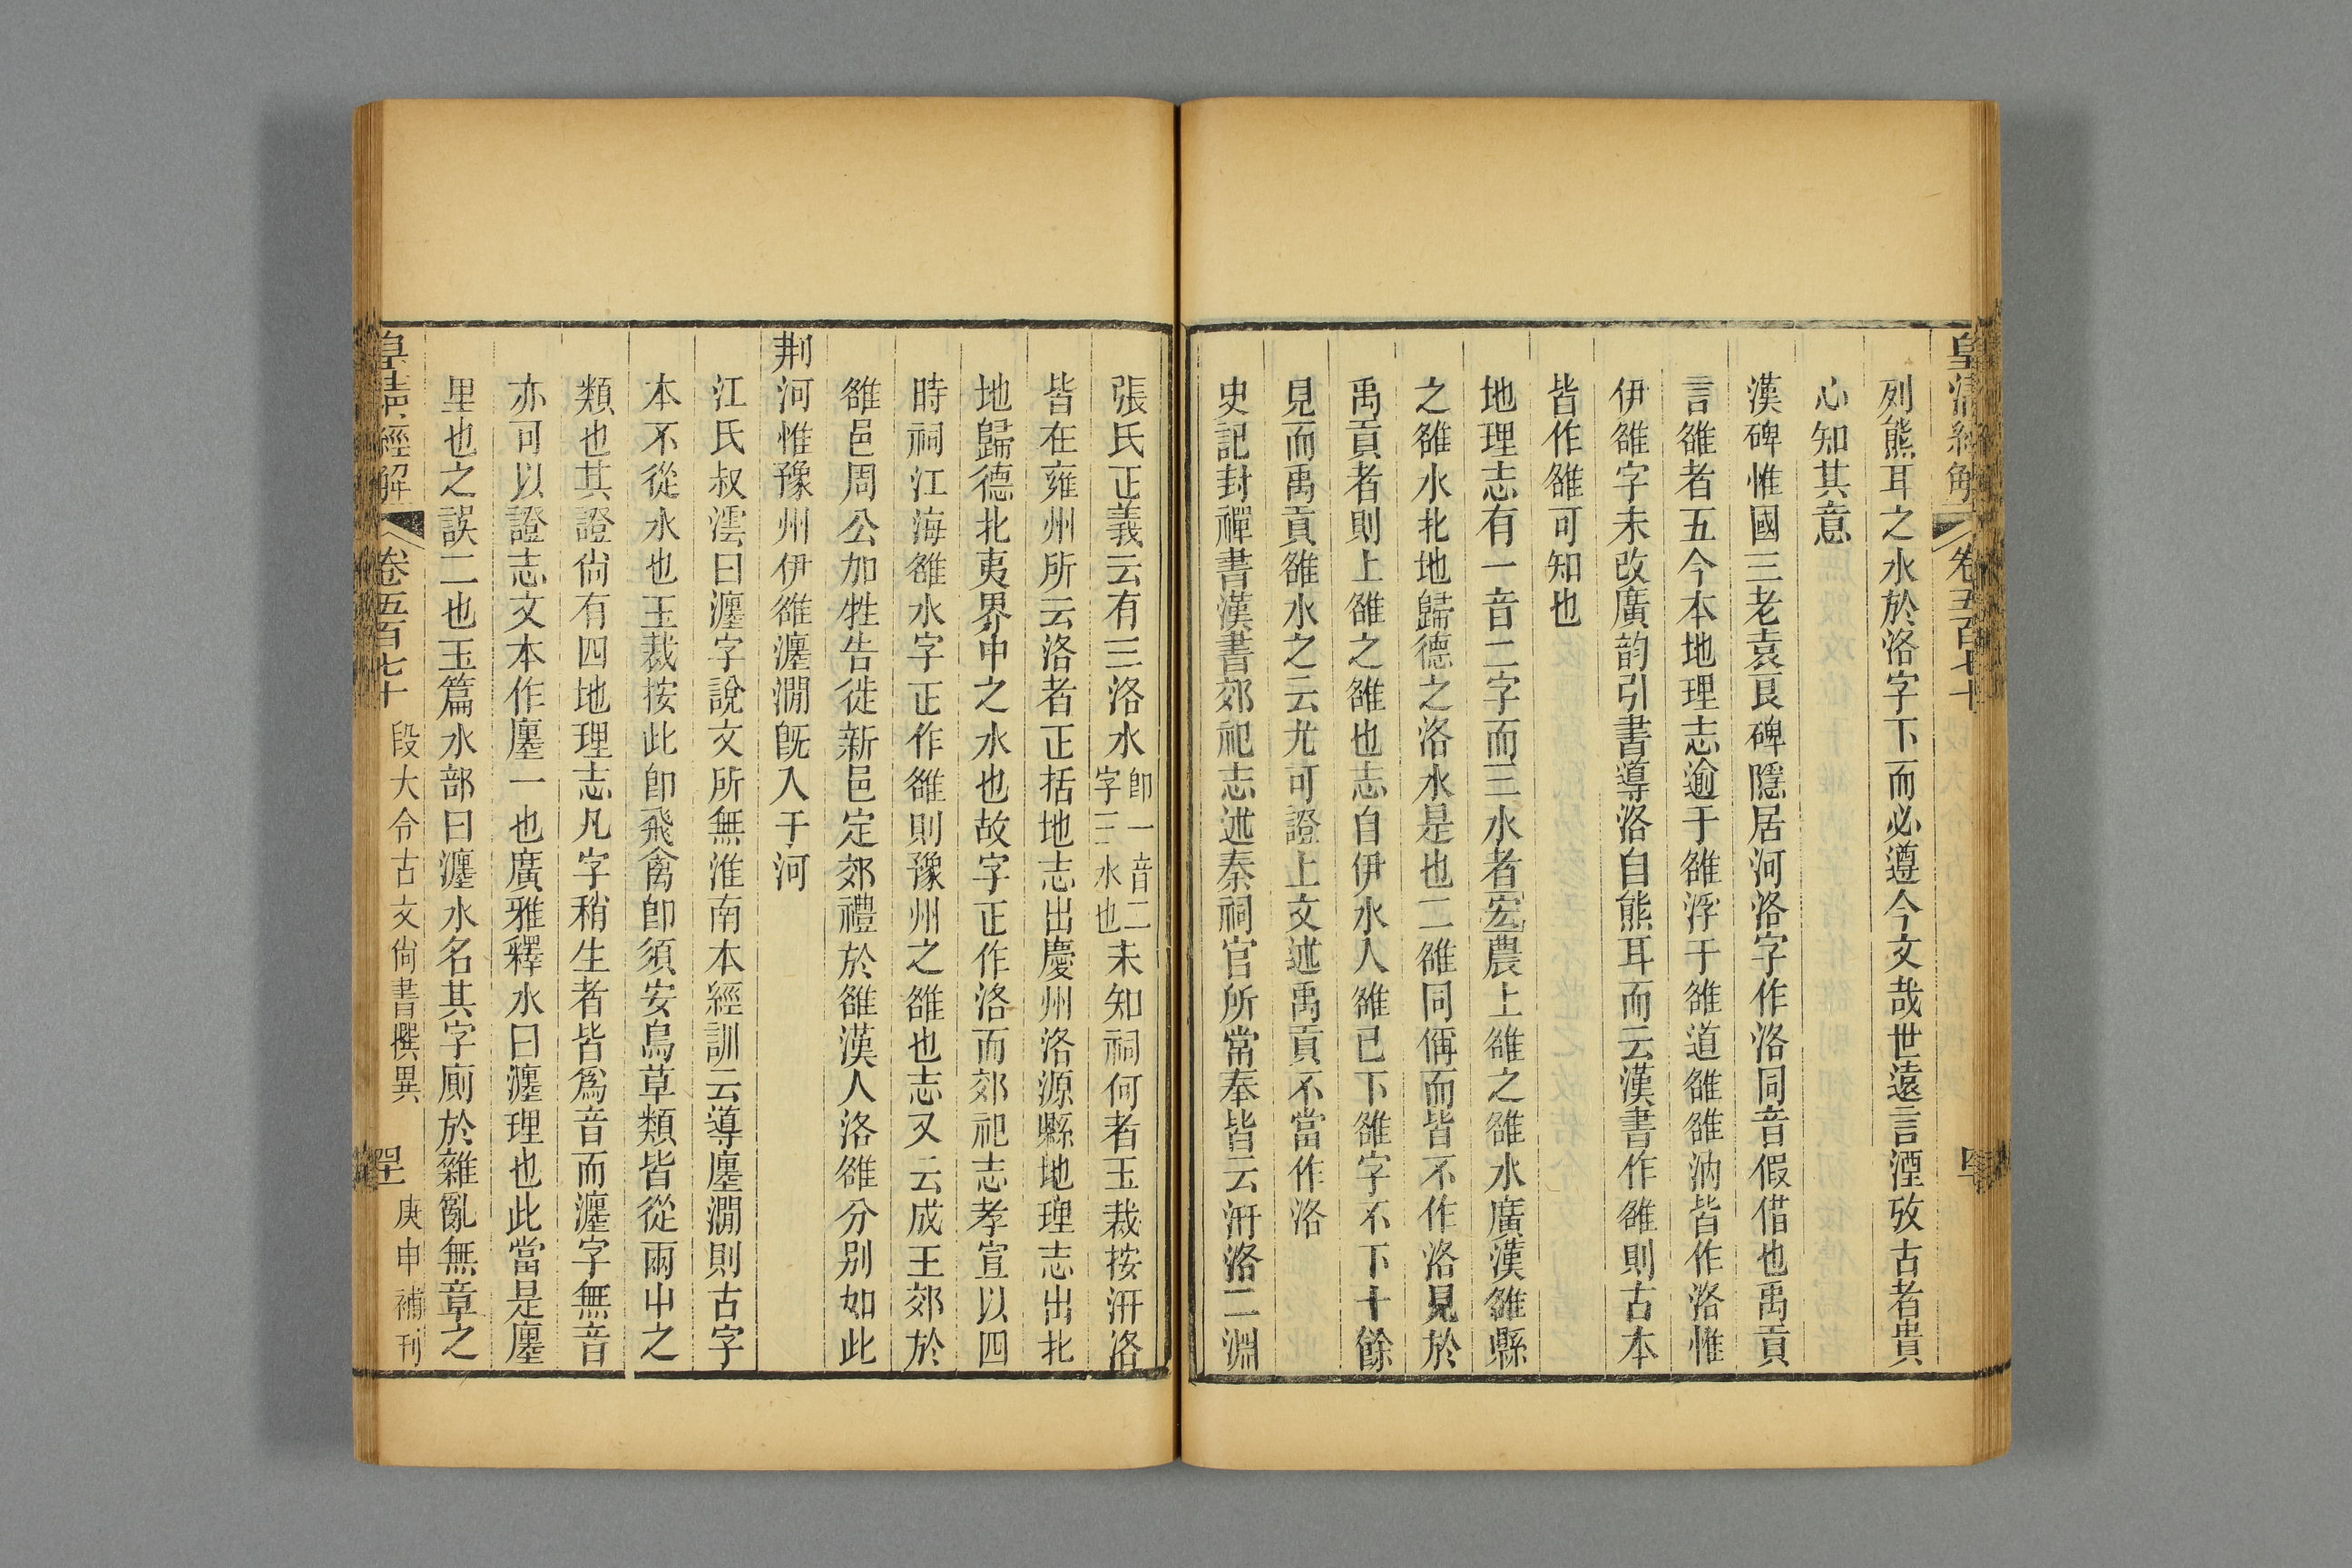 皇清經解
卷五百七十
列熊耳之水於洛字下而必遵今文哉世遠言湮攷古者貴
心知其意
漢碑惟國三老袁良碑隱居河洛字作洛同音假借也禹貢
言雒者五今本地理志逾于雒浮于雒道雒雒汭皆作洛惟
伊雒字未改廣韵引書導洛自熊耳而云漢書作雒則古本
皆作雒可知也
地理志有一音二字而三水者宏農上雒之雒水廣漢雒縣
之雒水北地歸德之洛水是也二雒同偁而皆不作洛見於
禹貢者則上雒之雒也志自伊水入雒已下雒字不下十餘
見而禹貢雒水之云尤可證上文述禹貢不當作洛
史記封禪書漢書郊祀志述秦祠官所常奉皆云汧洛二淵
張氏正義云有三洛水卽一音二字三水也未知祠何者玉裁按汧洛
皆在雍州所云洛者正括地志出慶州洛源縣地理志出北
地歸德北夷界中之水也故字正作洛而郊祀志孝宣以四
時祠江海雒水字正作雒則豫州之雒也志又云成王郊於
雒邑周公加牲告徙新邑定郊禮於雒漢人洛雒分别如此
荆河惟豫州伊雒瀍澗旣入于河
江氏叔澐曰瀍字說文所無淮南本經訓云導廛澗則古字
本不從水也玉裁按此卽飛禽卽須安鳥草類皆從兩屮之
類也其證尙有四地理志凡字稍生者皆爲音而瀍字無音
亦可以證志文本作廛一也廣雅釋水曰瀍理也此當是廛
里也之誤二也玉篇水部曰瀍水名其字廁於雜亂無章之
皇清經解
卷五百七十
段大令古文尙書撰異
庚申補刊